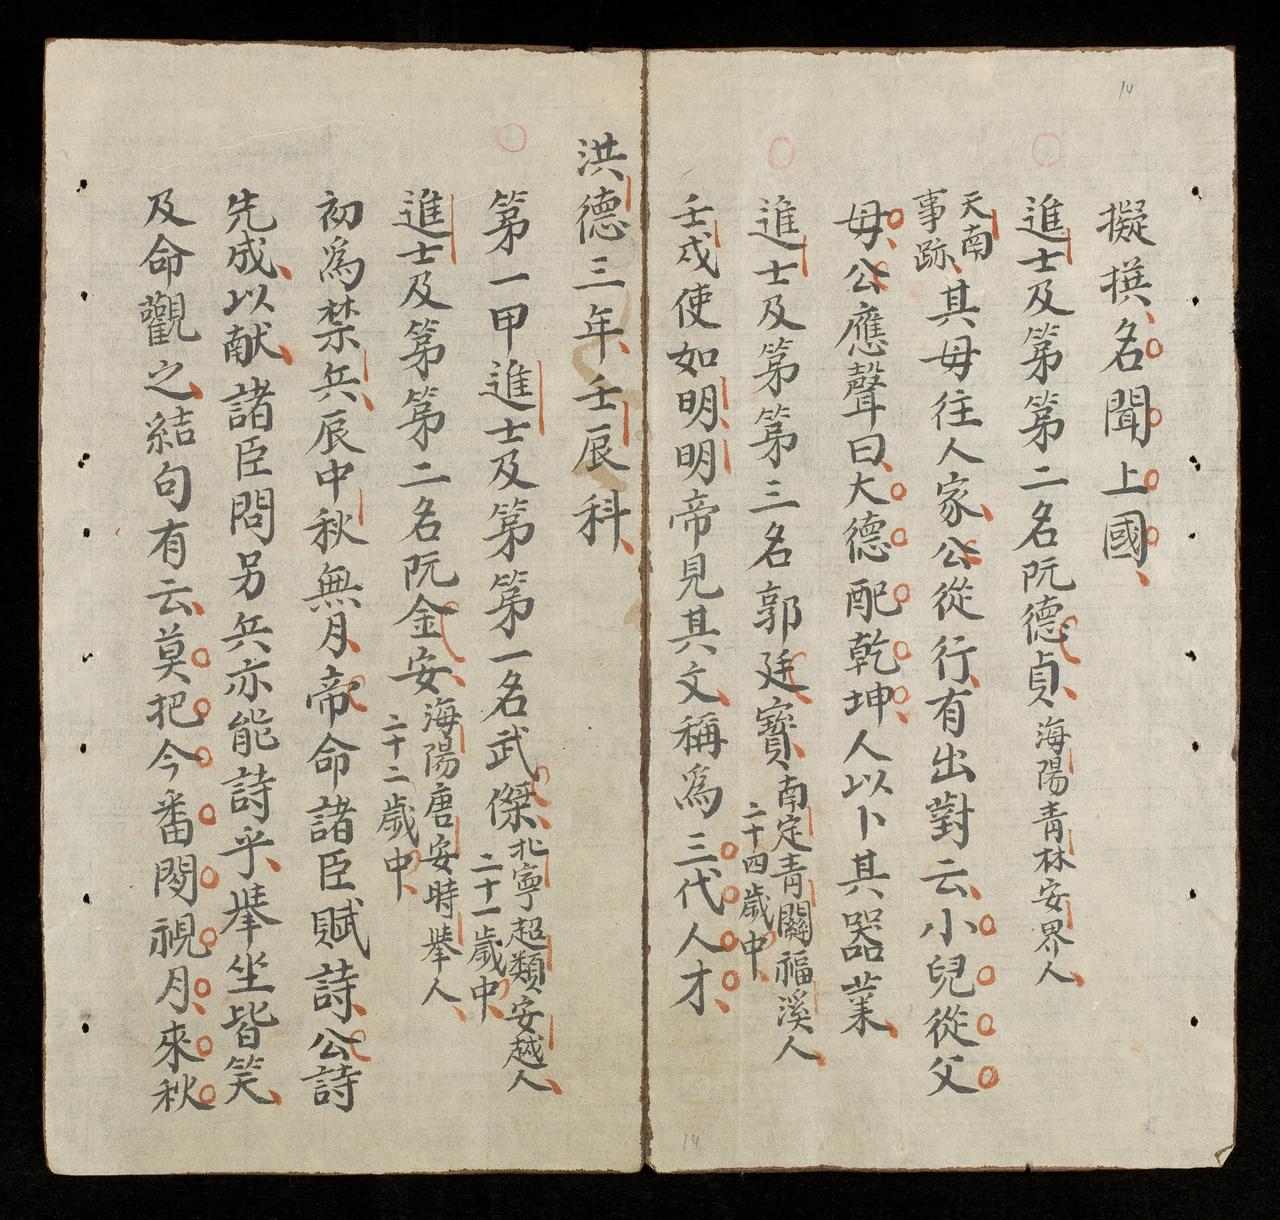 14
擬撰名聞上國
進士及第第二名阮德貞海陽青林安界人
天南事跡其母往人家公從行有出對云小兒從父
母公應聲曰大德配乾坤人以卜其器業
進士及第第三名郭廷寳南定青關福溪人二十四歲中
壬戍使如明明帝見其文稱爲三代人才
洪德三年壬辰科
第一甲進士及第第一名武傑北寧超類安越人二十一歲中
進士及第第二名阮金安海陽唐安時舉人二十二歲中
初爲禁兵辰中秋無月帝命諸臣賦詩公詩
先成以献諸臣問另兵亦能詩乎舉坐皆笑
及命觀之結句有云莫把今番閔視月來秋
14